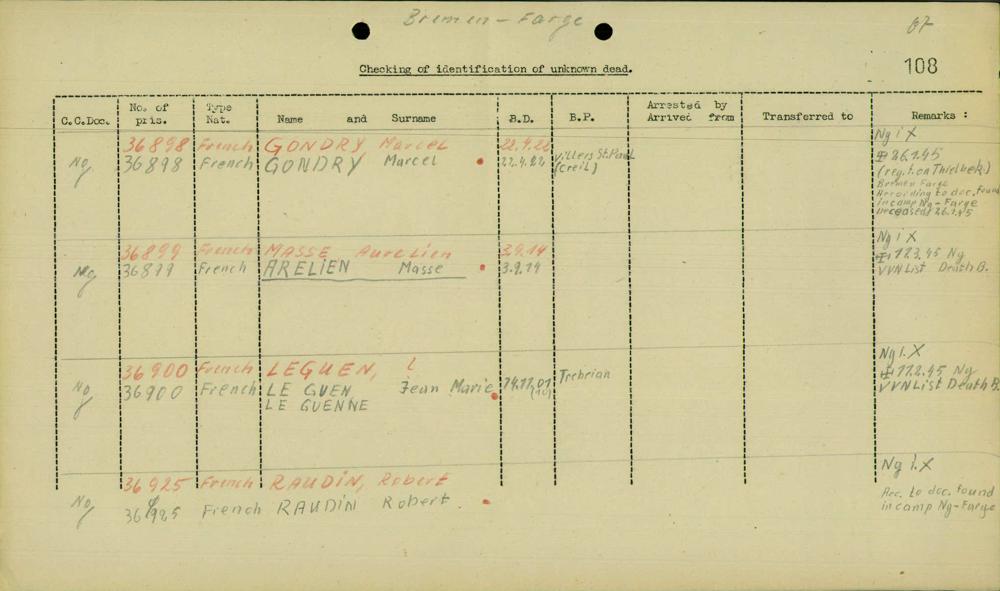 Bremen - Farge
67
108
Checking of identification of unknown dead.
C.C.Doc. No. of pris. Type Nat. Name and Surname B.D. B.P. Arrested by Arrived from Transferred to Remarks :
36898 French GONDRY Marcel 22.4.22 Ng i X
Ng 36898 French GONDRY Marcel 22.4.22 Villers St.Paul (Creil) 26.1.45
(reg. t. on Thielbek.)
Bremen Farge
According to doc. found
in camp Ng-Farge
Deceased 26.1.45
36899 French MASSE Aurelien 3.9.14 Ng i X
Ng 36899 French ARELIEN Masse 3.9.14 Ng
VVN List Death B.
36900 French LEGUEN, Ng i. X
Ng 36900 French LE GUEN Jean Marie 14.11.01 (10) Trebrian Ng
LE GUENNE VVN List Death B.
36925 French RAUDIN, Robert Ng i. X
Ng 36925 French RAUDIN Robert Acc. to doc. found
in camp Ng-Farge